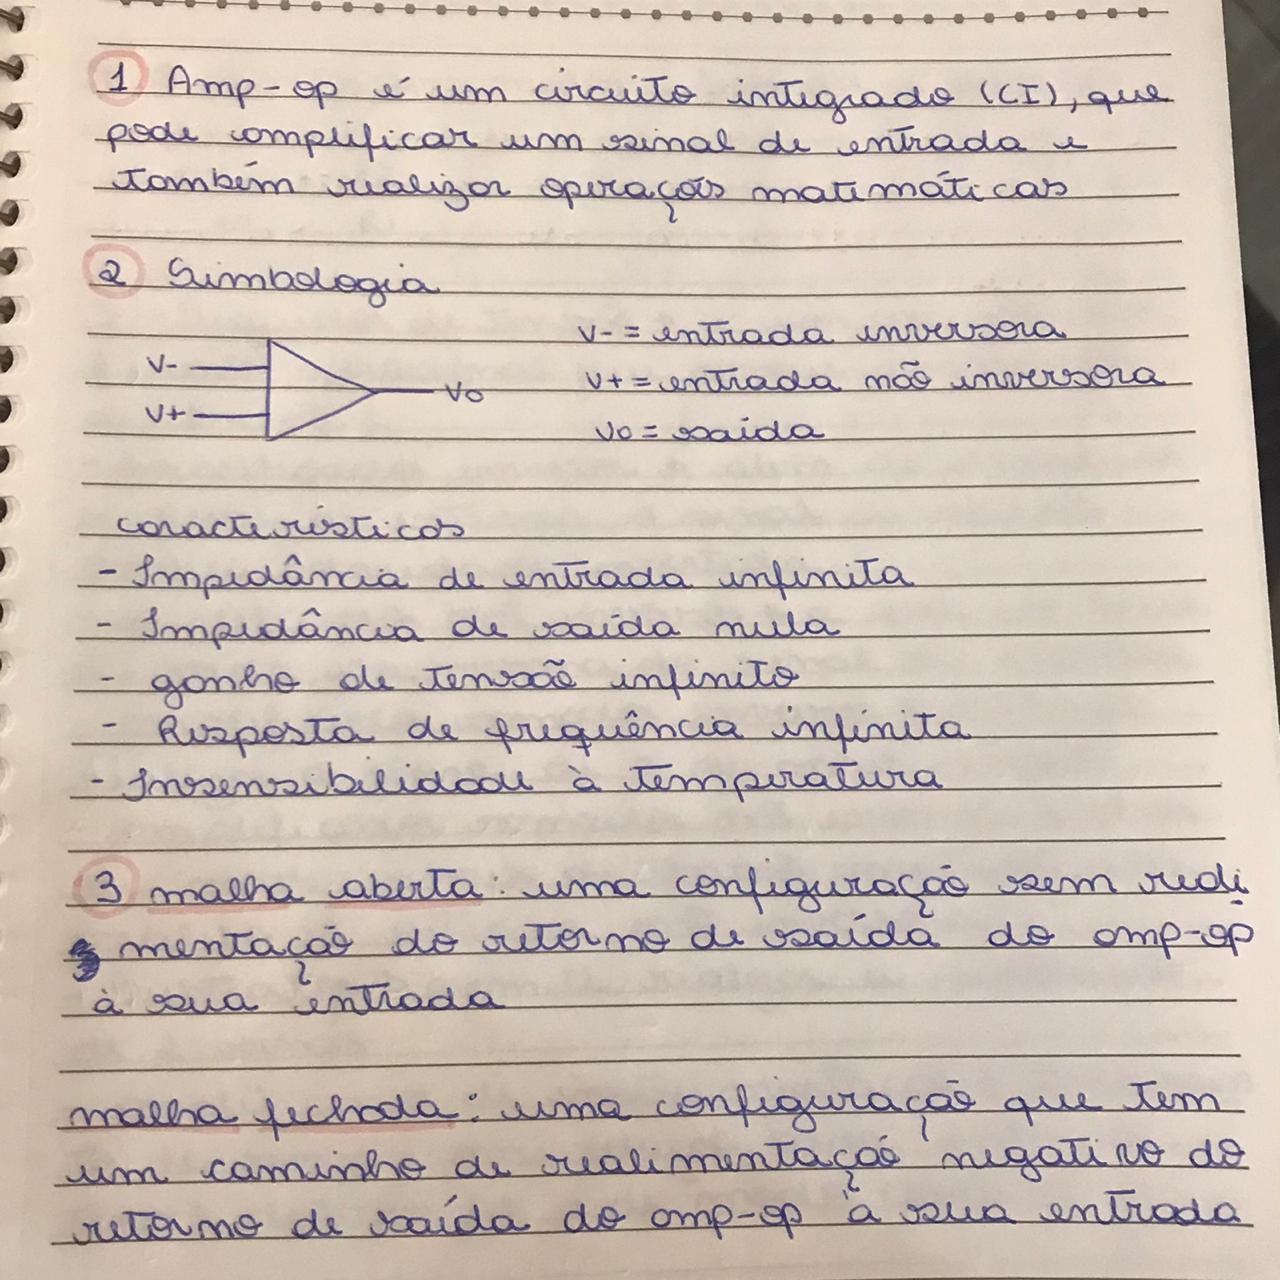 1 Amp-op é um circuito integrado (CI), que
pode amplificar um sinal de entrada e
também realizar operações matemáticas
2 Simbologia
V- = entrada inversora
V-
V+ = entrada não inversora
V+
Vo
Vo = saída
características
- Impedância de entrada infinita
- Impedância de saída nula
- ganho de tensão infinito
- Resposta de frequência infinita
- Insensibilidade à temperatura
3 malha aberta: uma configuração sem redi
mentação do retorno de saída do amp-op
à sua entrada
malha fechada: uma configuração que tem
um caminho de realimentação negativo do
retorno de saída do amp-op à sua entrada